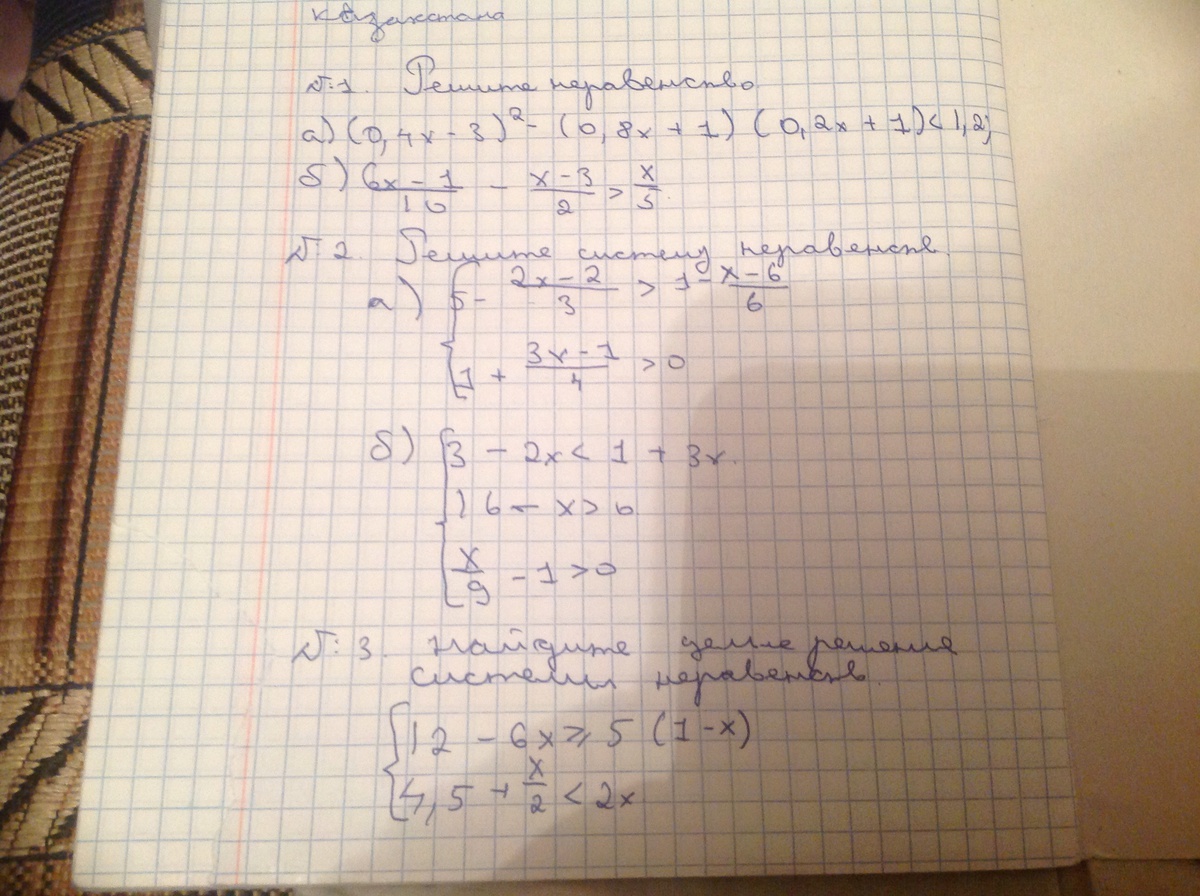 Казахстана
№:1. Решите неравенство
а) (0,4x - 3)² - (0,8x + 1) (0,2x + 1) < 1,2;
б) (6x - 1)/10 - (x - 3)/2 > x/5
№:2. Решите систему неравенств.
а) { 5 - (2x - 2)/3 > 1 - (x - 6)/6
1 + (3x - 1)/4 > 0
б) { 3 - 2x < 1 + 3x.
16 - x > 6
x/9 - 1 > 0
№:3. Найдите целые решения
системы неравенств.
{ 12 - 6x ⩾ 5 (1 - x)
4,5 + x/2 < 2x